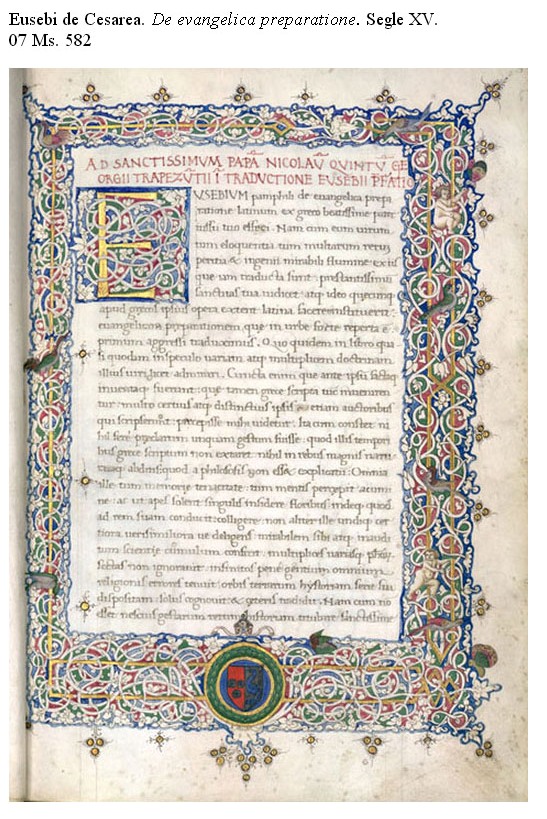 Eusebi de Cesarea. De evangelica preparatione. Segle XV.
07 Ms. 582
AD SANCTISSIMVM PAPĀ NICOLAŪ QVINTŪ GE
ORGII TRAPEZŪTII Ī TRADVCTIONE EUSEBII P̄FATIO
EVSEBIVM pamphili de euangelica prepa
ratione latinum ex greco beatissime pater
iussu tuo effeci. Nam cum eum uirum
tum eloquentia tum multarum rerum
peritia & ingenii mirabili flumine ex iis
que iam traducta sunt prestantissimum
sanctitas tua iudicet atque ideo quecunque
apud grecos ipsius opera extent latina facere instituerit
euangelicam preparationem que in urbe forte reperta e
primum aggressi traduximus. Quo quidem in libro qua
si quodam in speculo uariam atque multiplicem doctrinam
illius uiri licet admirari. Cuncta enim que ante ipsum
inuentaque fuerunt que tamen grece scripta tuc
tur multo certius atque distinctius ipsis etiam auctoribus
qui scripserunt percepisse mihi uidetur. Ita cum constet ni
hil fere preclarum unquam gestum fuisse quod illis tempori
bus grece scriptum non extaret nihil in rebus magnis natu
raque abditis quod a philosophis non esset explicatum Omnia
ille tum memorie tenacitate tum mentis percepit acumi
ne ac ut apes solent singulis insidere floribus indeque quod
ad rem suam conducit colligere non aliter ille undique cer
tiora uerisimiliora ue deligens mirabilem sibi atque inaudi
tum scientie cumulum confecit multiplices uariasque
sectas non ignorauit infinitos pene gentium omnium
religionis errores tenuit orbis terrarum hystoriam serie sua
dispositam solus cognouit & ceteris tradidit. Nam cum no
esset nescius gestarum rerum historiam sanctissime